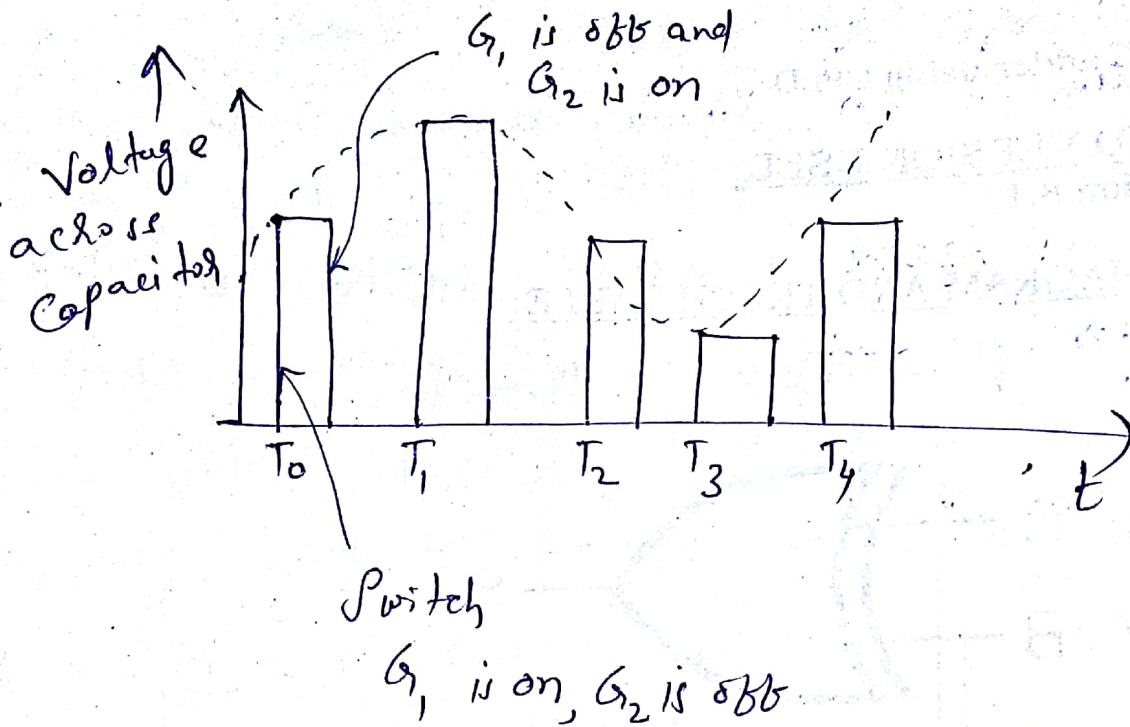 G₁ is off and
G₂ is on
Voltage
across
Capacitor
T₀ T₁ T₂ T₃ T₄
t
Switch
G₁ is on, G₂ is off